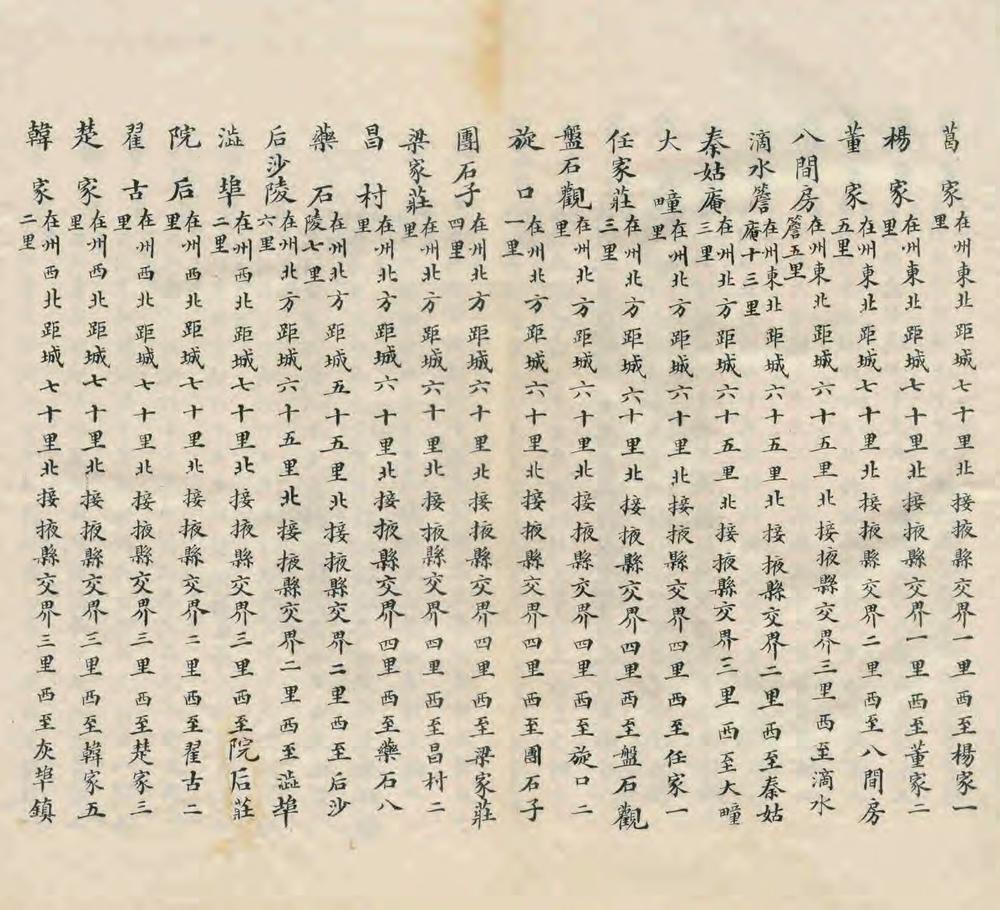 葛家在州東北距城七十里北接掖縣交界一里西至楊家一里
楊家在州東北距城七十里北接掖縣交界一里西至董家二里
董家在州東北距城七十里北接掖縣交界二里西至八間房五里
八間房在州東北距城六十五里北接掖縣交界三里西至滴水簷五里
滴水簷在州東北距城六十五里北接掖縣交界二里西至秦姑庵十三里
秦姑庵在州北方距城六十五里北接掖縣交界三里西至大疃三里
大疃在州北方距城六十里北接掖縣交界四里西至任家一里
任家莊在州北方距城六十里北接掖縣交界四里西至盤石觀三里
盤石觀在州北方距城六十里北接掖縣交界四里西至旋口二里
旋口在州北方距城六十里北接掖縣交界四里西至團石子一里
團石子在州北方距城六十里北接掖縣交界四里西至梁家莊四里
梁家莊在州北方距城六十里北接掖縣交界四里西至昌村二里
昌村在州北方距城六十里北接掖縣交界四里西至藥石八里
藥石在州北方距城五十五里北接掖縣交界二里西至后沙陵七里
后沙陵在州北方距城六十五里北接掖縣交界二里西至澁埠六里
澁埠在州西北距城七十里北接掖縣交界三里西至院后莊二里
院后在州西北距城七十里北接掖縣交界二里西至翟古二里
翟古在州西北距城七十里北接掖縣交界三里西至楚家三里
楚家在州西北距城七十里北接掖縣交界三里西至韓家五里
韓家在州西北距城七十里北接掖縣交界三里西至灰埠鎮二里